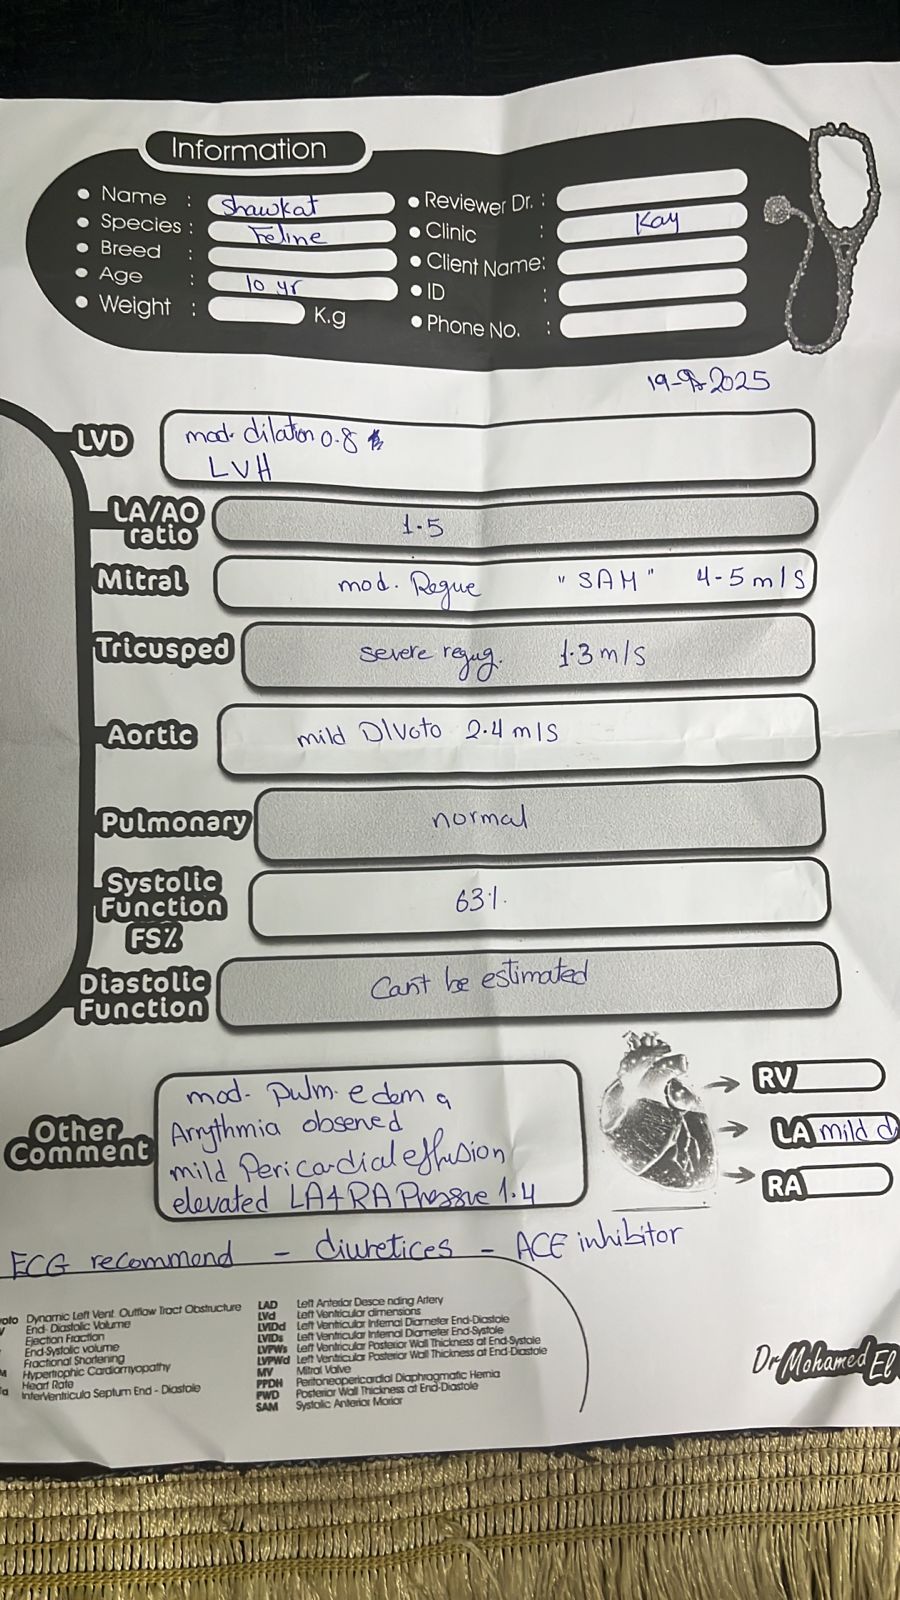 Information
Name : Shawkat
Species : Feline
Breed :
Age : 10 yr
Weight : K.g
Reviewer Dr. :
Clinic : Kay
Client Name:
ID :
Phone No. :
2025
LVD mod. dilation 0.8
LVH
LA/AO ratio 1.5
Mitral mod. Regue "SAM" 4-5 m/s
Tricusped severe regug. 1.3 m/s
Aortic mild DLVOTO 2.4 m/s
Pulmonary normal
Systolic Function FS% 63%
Diastolic Function Can't be estimated
Other Comment
mod. pulm. edema
Arrythmia observed
mild Pericardial effusion
elevated LA & RA Pressure 1.4
RV
LA mild d
RA
ECG recommend - diuretices - ACE inhibitor
Dynamic Left Vent. Outflow Tract Obstructure
End- Diastolic Volume
Ejection Fraction
End-Systolic volume
Fractional Shortening
Hypertrophic Cardiomyopathy
Heart Rate
InterVentricula Septum End - Diastole
LAD Left Anterior Desce nding Artery
LVd Left Ventricular dimensions
LVIDd Left Ventricular Internal Diameter End-Diastole
LVIDs Left Ventricular Internal Diameter End-Systole
LVPWs Left Ventricular Posterior Wall Thickness at End-Systole
LVPWd Left Ventricular Posterior Wall Thickness at End-Diastole
MV Mitral Valve
PPDH Peritoneopericardial Diaphragmatic Hernia
PWD Posterior Wall Thickness at End-Diastole
SAM Systolic Anterior Motior
Dr Mohamed El